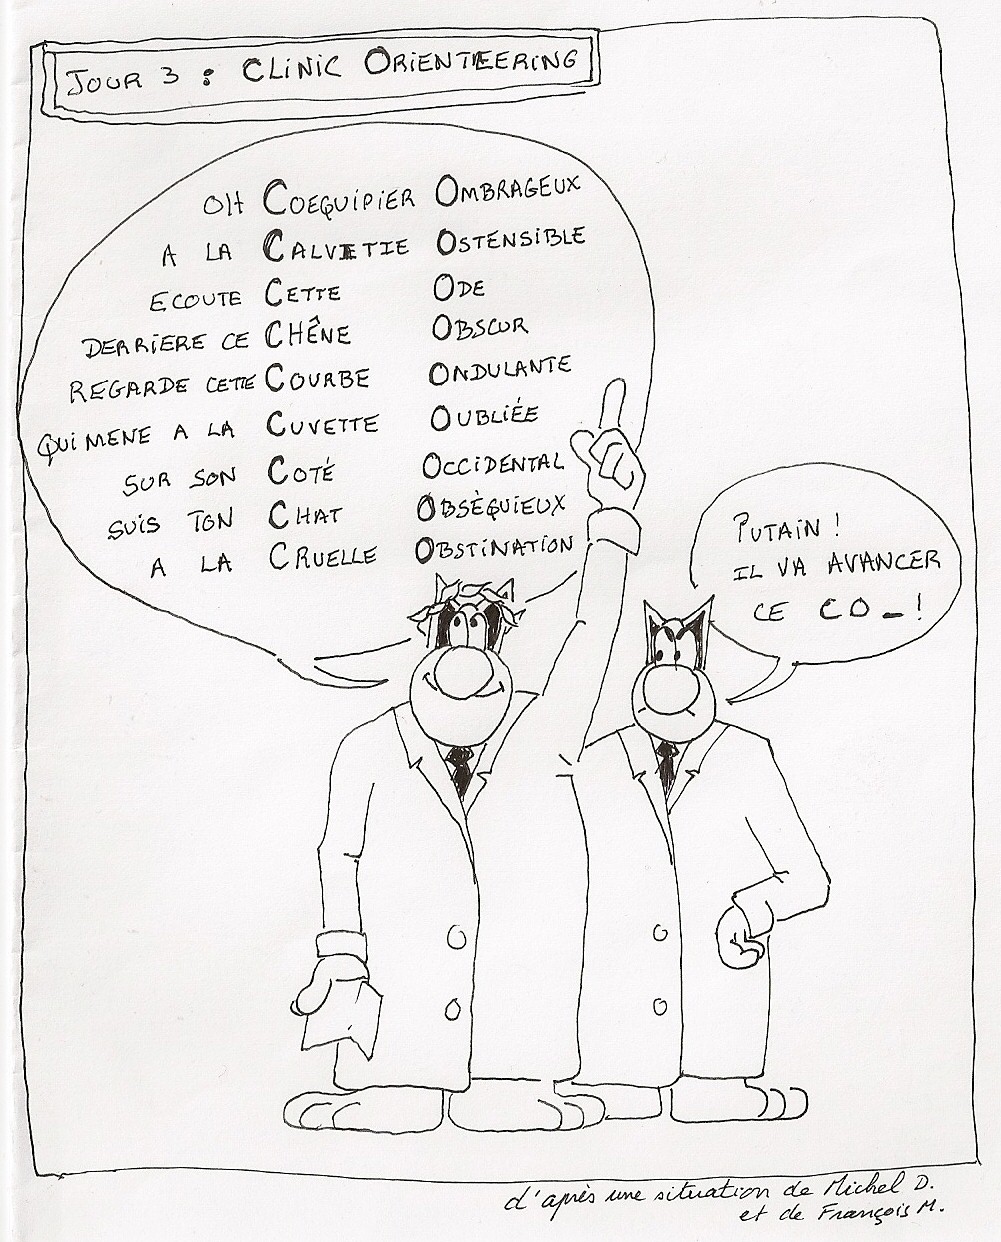 JOUR 3 : CLINIC ORIENTEERING
OH COEQUIPIER OMBRAGEUX
A LA CALVITIE OSTENSIBLE
ECOUTE CETTE ODE
DERRIERE CE CHÊNE OBSCUR
REGARDE CETTE COURBE ONDULANTE
QUI MENE A LA CUVETTE OUBLIÉE
SUR SON COTÉ OCCIDENTAL
SUIS TON CHAT OBSÈQUIEUX
A LA CRUELLE OBSTINATION
PUTAIN !
IL VA AVANCER
CE CO_ !
d'après une situation de Michel D.
et de François M.